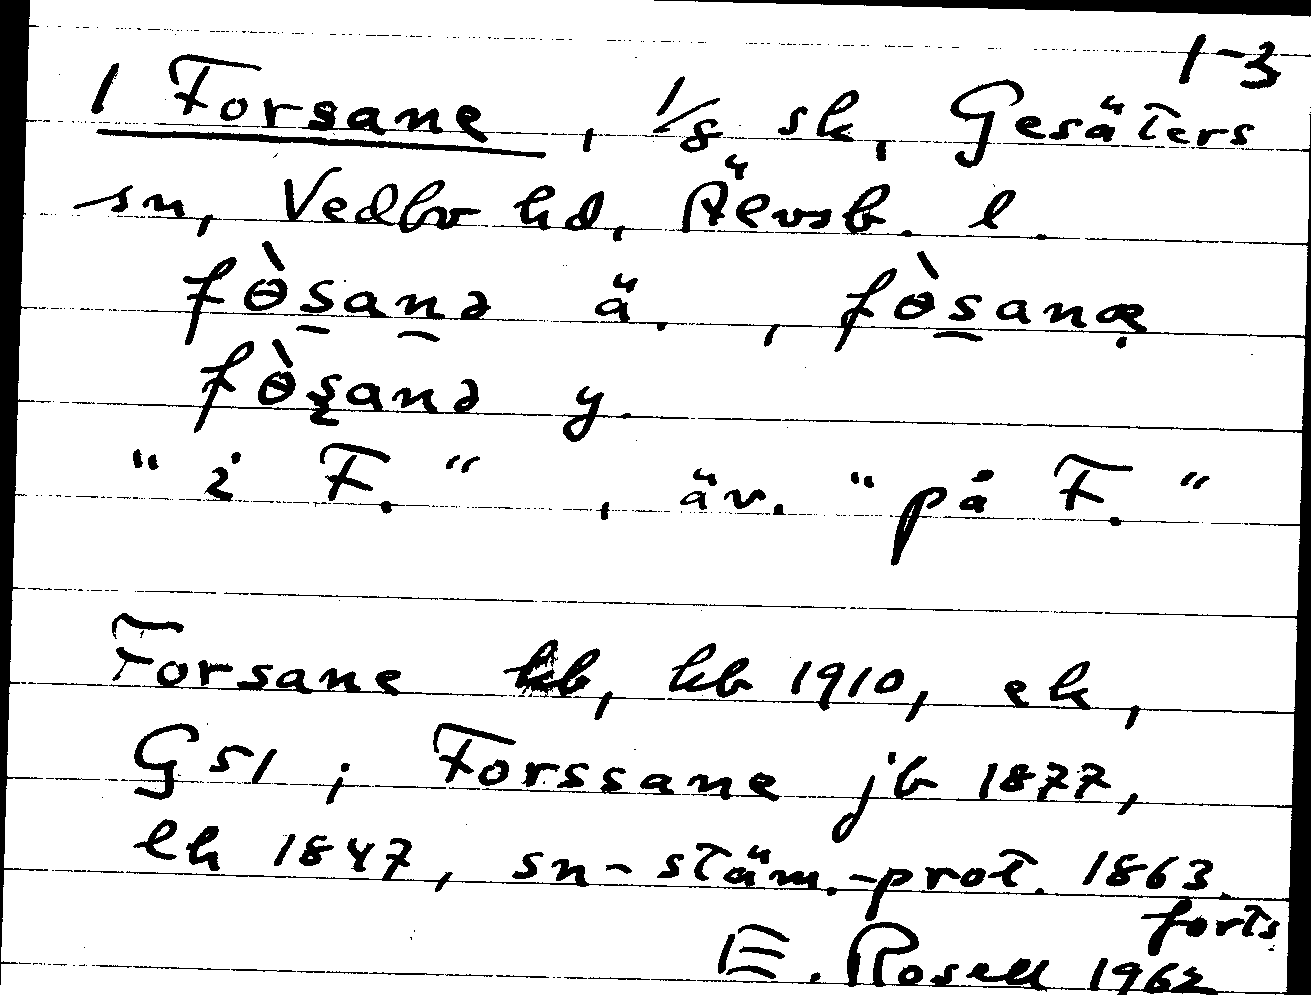 1-3
1 Forsane, 1/8 sk, Gesäters
sn, Vedbo hd, Älvsb. l.
fɵ̀s̯an̯ə ä., fɵ̀s̯anæ̣
fɵ̀s̨anə y.
"i F.", äv. "på F."
Forsane kb, hb 1910, ek,
G51; Forssane jb 1877,
lh 1847, sn-stäm.-prot. 1863.
forts
E. Rosell 1962